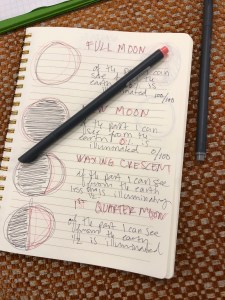 FULL MOON
of the I can
see
earth
illuminated 100/100
MOON
of the part I can
see from the
earth 0% is
illuminated 0/100
WAXING CRESCENT
of the part I can see
from the earth
less
1st QUARTER MOON
of the part I can see
from the earth
1/2 is illuminated